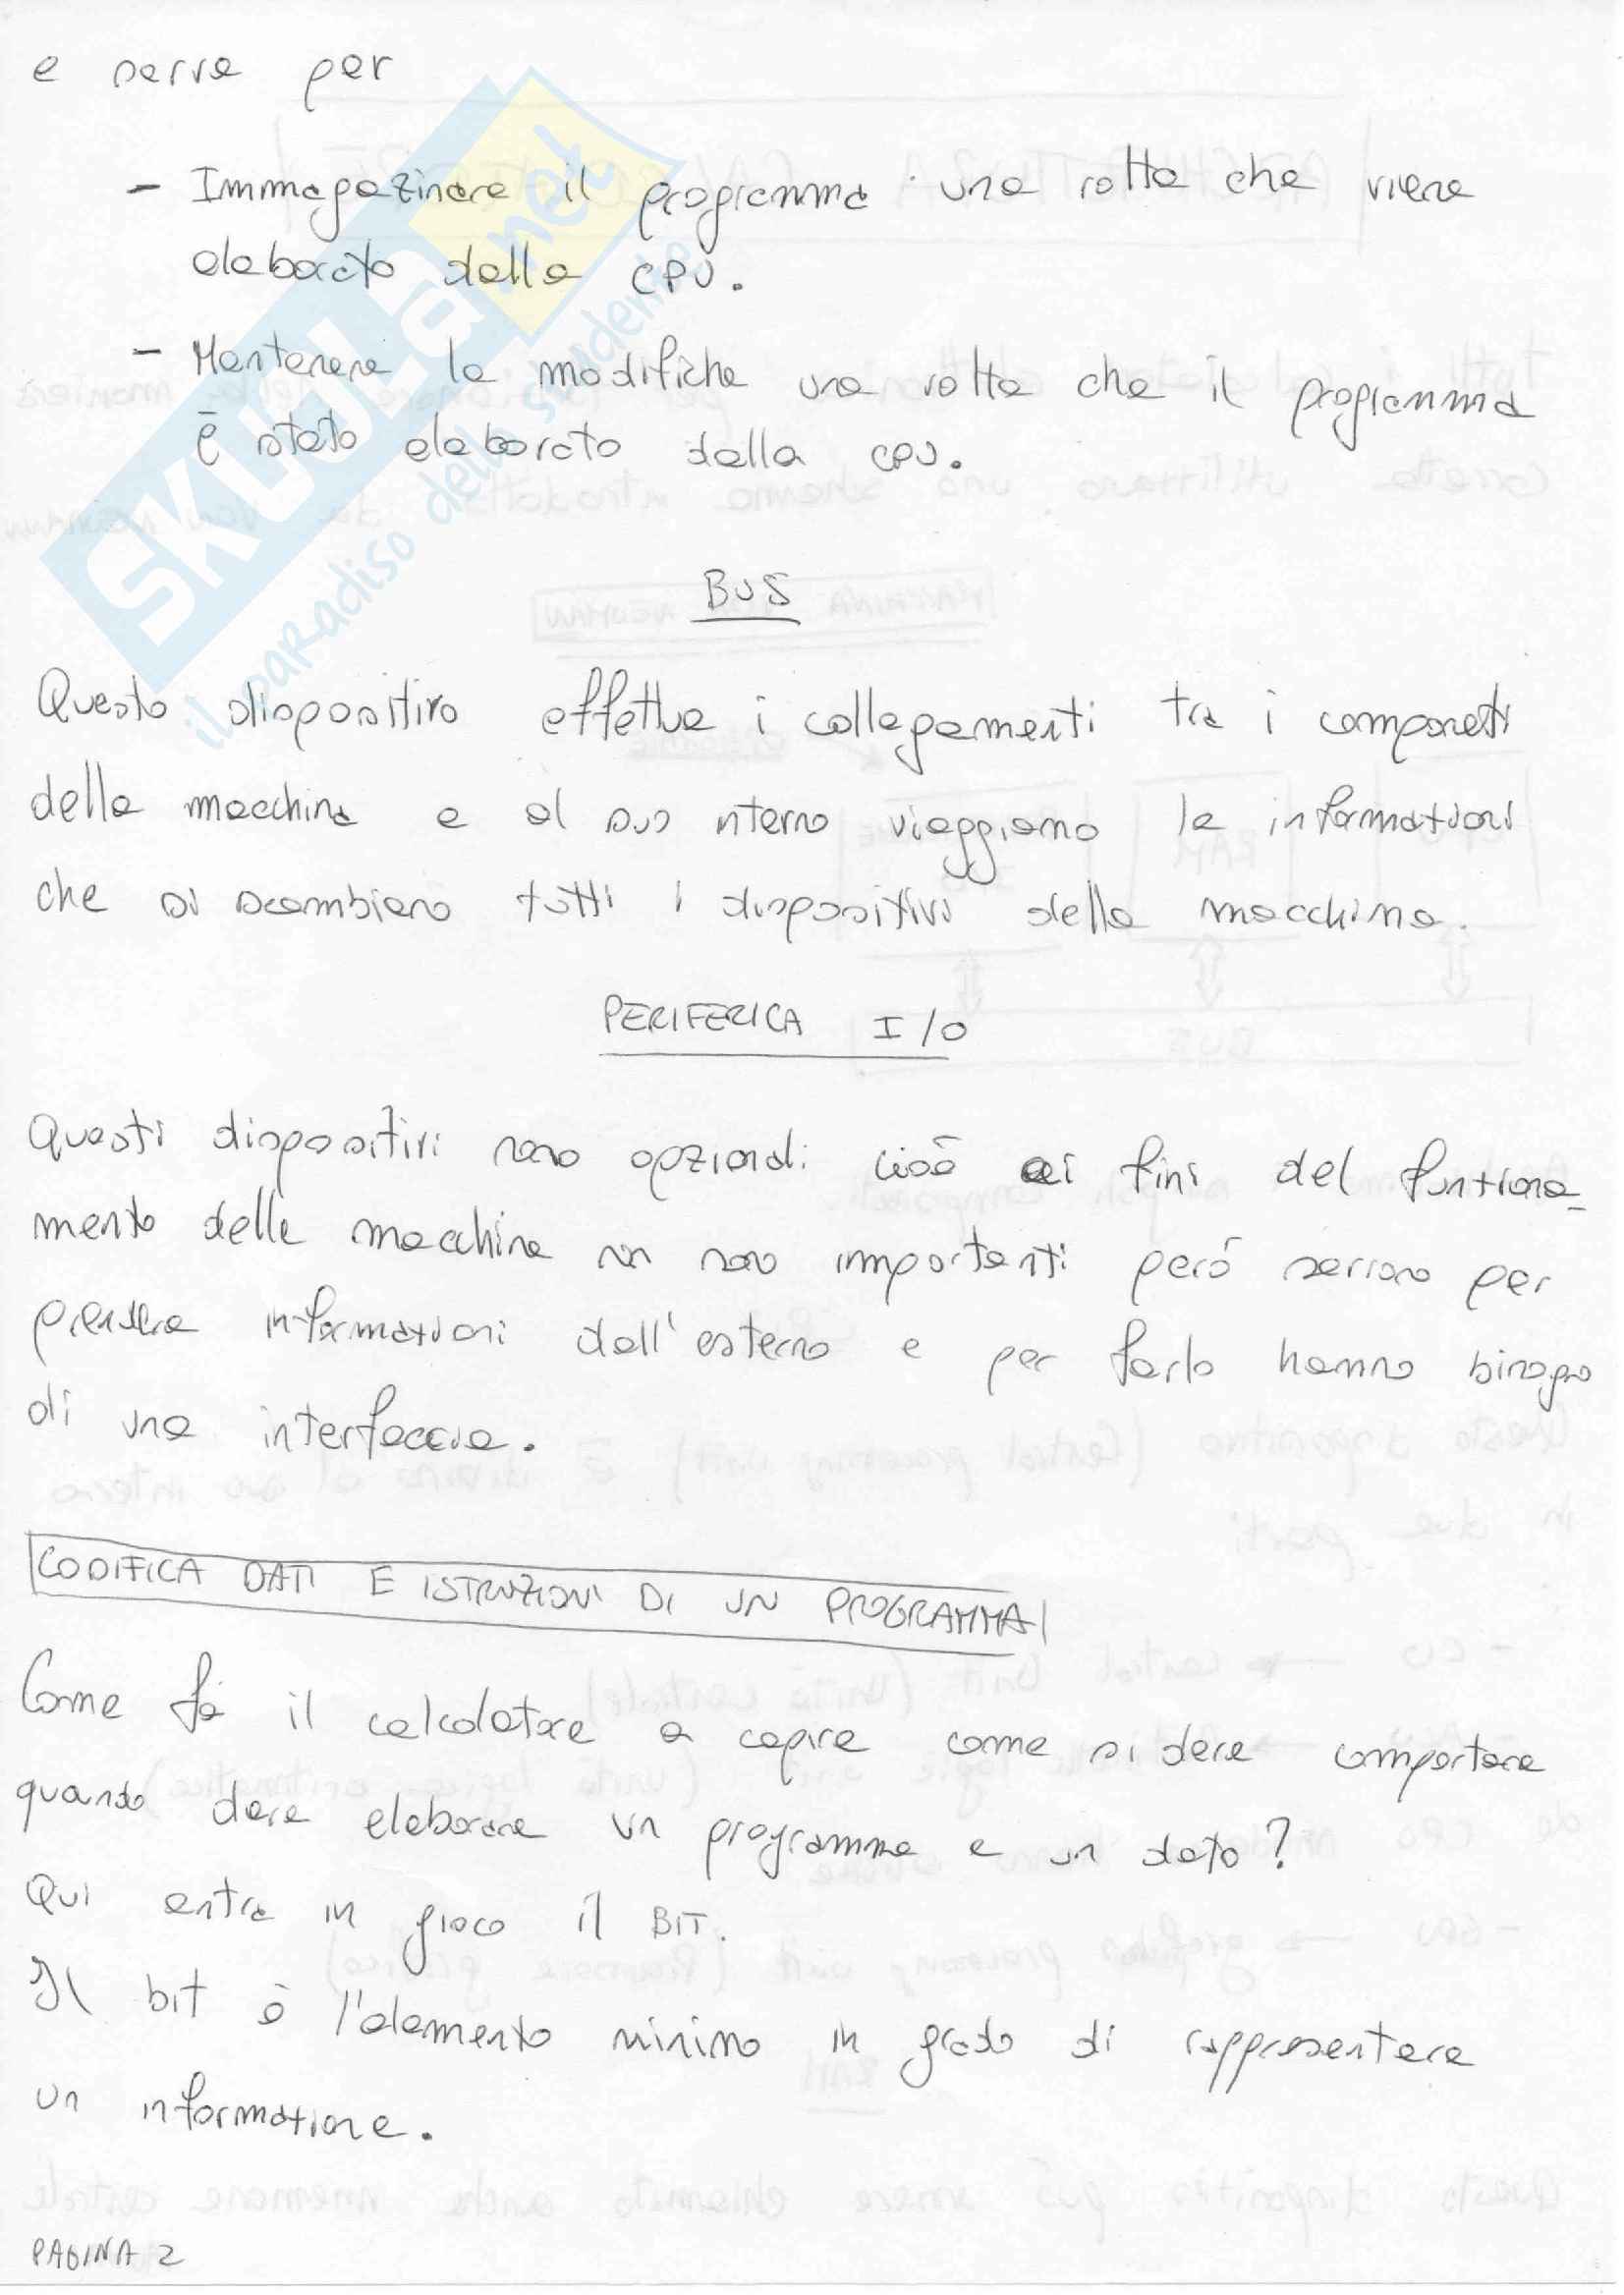 e serve per
- Immagazzinare il programma una volta che viene
elaborato dalla CPU.
- Mantenere le modifiche una volta che il programma
è stato elaborato dalla CPU.
BUS
Questo dispositivo effettua i collegamenti tra i componenti
della macchina e al suo interno viaggiano le informazioni
che si scambiano tutti i dispositivi della macchina.
PERIFERICA I/O
Questi dispositivi sono opzionali cioè ai fini del funziona-
mento della macchina non sono importanti però servono per
prendere informazioni dall'esterno e per farlo hanno bisogno
di una interfaccia.
CODIFICA DATI E ISTRUZIONI DI UN PROGRAMMA
Come fà il calcolatore a capire come si deve comportare
quando deve elaborare un programma e un dato?
Qui entra in gioco il BIT.
Il bit è l'elemento minimo in grado di rappresentare
un informazione.
PAGINA 2
SKUOLa.net
il paradiso dello studente